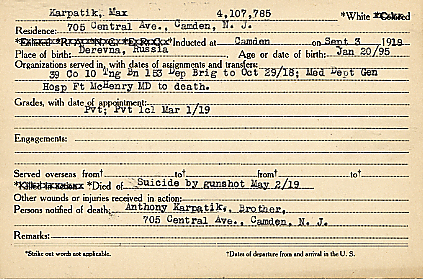 Karpatik, Max 4,107,785 *White *Colored
Residence: 705 Central Ave., Camden, N. J.
*Enlisted *R.A. *N.G. *E.R.C. *Inducted at Camden on Sept 3 1918
Place of birth: Derevna, Russia Age or date of birth: Jan 20/95
Organizations served in, with dates of assignments and transfers:
39 Co 10 Tng Bn 153 Dep Brig to Oct 29/18; Med Dept Gen
Hosp Ft McHenry MD to death.
Grades, with date of appointment:
Pvt; Pvt 1cl Mar 1/19
Engagements:
Served overseas from† to† from† to†
*Killed in action *Died of Suicide by gunshot May 2/19
Other wounds or injuries received in action:
Persons notified of death: Anthony Karpatik, Brother,
705 Central Ave., Camden, N. J.
Remarks:
*Strike out words not applicable. †Dates of departure from and arrival in the U. S.